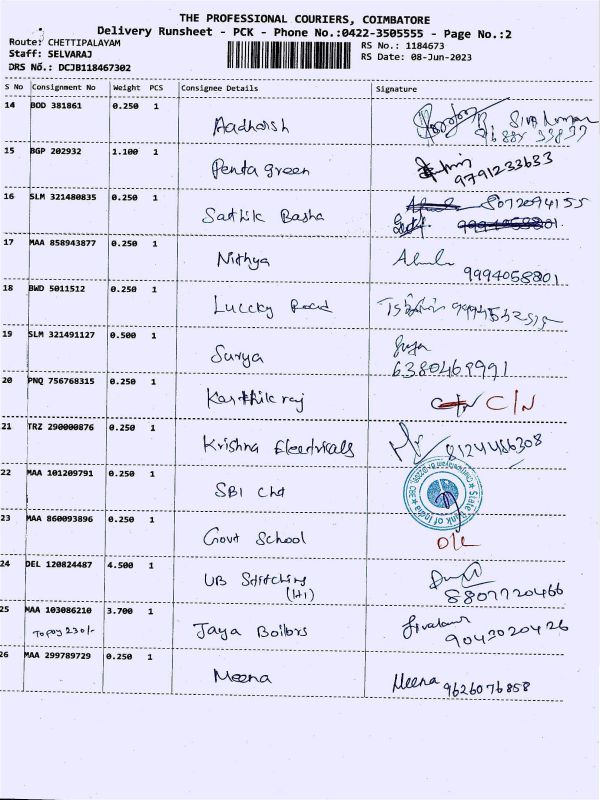 THE PROFESSIONAL COURIERS, COIMBATORE
Delivery Runsheet - PCK - Phone No.:0422-3505555 - Page No.:2
Route: CHETTIPALAYAM
RS No.: 1184673
Staff: SELVARAJ
RS Date: 08-Jun-2023
DRS No.: DCJB118467302
S No Consignment No Weight PCS Consignee Details Signature
14 BOD 381861 0.250 1 Aadharsh
15 BGP 202932 1.100 1 Penta green 9791233633
16 SLM 321480835 0.250 1 Sathik Basha 8072094155
17 MAA 858943877 0.250 1 Nithya 9994058801
18 BWD 5011512 0.250 1 Luccky Road
19 SLM 321491127 0.500 1 Surya 6380469991
20 PNQ 756768315 0.250 1 Karthik raj C/N
21 TRZ 290000876 0.250 1 Krishna Electricals 8124486308
22 MAA 101209791 0.250 1 SBI Chd
State Bank of India
23 MAA 860093896 0.250 1 Govt School O/L
24 DEL 120824487 4.500 1 UB Stitching
(H1) 8807720466
25 MAA 103086210 3.700 1 Jaya Boilors
Topay 230/- 9047020426
26 MAA 299789729 0.250 1 Meena Meena 9626076858